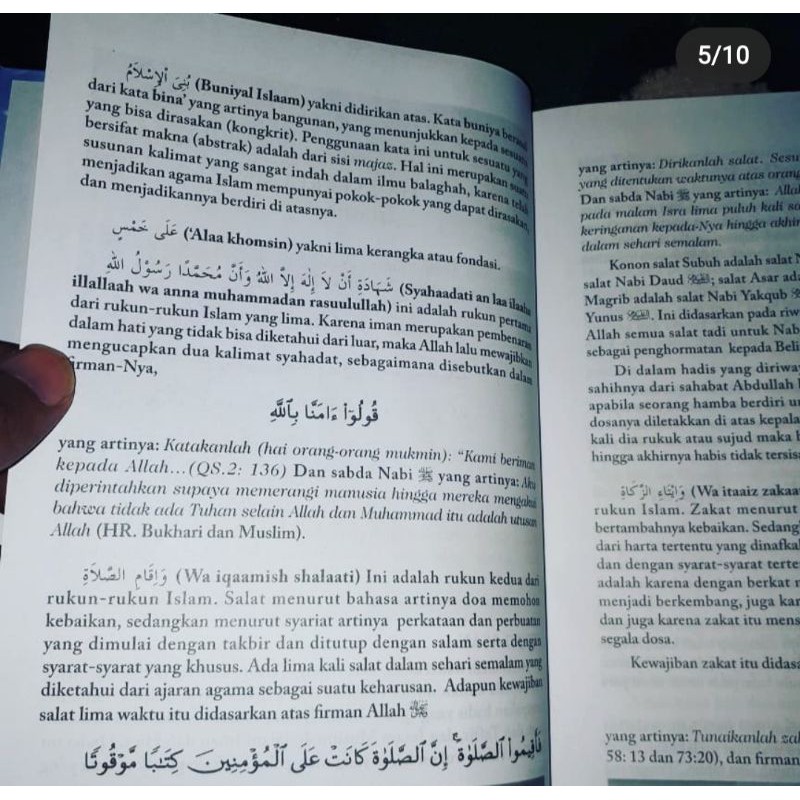 5/10
بُنِيَ الْإِسْلَامُ (Buniyal Islaam) yakni didirikan atas. Kata buniya
dari kata bina' yang artinya bangunan, yang menunjukkan kepada sesuatu
yang bisa dirasakan (kongkrit). Penggunaan kata ini untuk sesuatu yang
bersifat makna (abstrak) adalah dari sisi majaz. Hal ini merupakan suatu
susunan kalimat yang sangat indah dalam ilmu balaghah, karena telah
menjadikan agama Islam mempunyai pokok-pokok yang dapat dirasakan,
dan menjadikannya berdiri di atasnya.
عَلَى خَمْسٍ ('Alaa khomsin) yakni lima kerangka atau fondasi.
شَهَادَةِ أَنْ لَا إِلَهَ إِلاَّ اللهُ وَأَنَّ مُحَمَّدًا رَسُوْلُ اللهِ (Syahaadati an laa ilaaha
illallaah wa anna muhammadan rasuulullah) ini adalah rukun pertama
dari rukun-rukun Islam yang lima. Karena iman merupakan pembenaran
dalam hati yang tidak bisa diketahui dari luar, maka Allah lalu mewajibkan
mengucapkan dua kalimat syahadat, sebagaimana disebutkan dalam
firman-Nya,
قُولُوٓا۟ ءَامَنَّا بِٱللَّهِ
yang artinya: Katakanlah (hai orang-orang mukmin): "Kami beriman
kepada Allah...(QS.2: 136) Dan sabda Nabi ﷺ yang artinya: Aku
diperintahkan supaya memerangi manusia hingga mereka mengakui
bahwa tidak ada Tuhan selain Allah dan Muhammad itu adalah utusan
Allah (HR. Bukhari dan Muslim).
وَإِقَامِ الصَّلَاةِ (Wa iqaamish shalaati) Ini adalah rukun kedua dari
rukun-rukun Islam. Salat menurut bahasa artinya doa memohon
kebaikan, sedangkan menurut syariat artinya perkataan dan perbuatan
yang dimulai dengan takbir dan ditutup dengan salam serta dengan
syarat-syarat yang khusus. Ada lima kali salat dalam sehari semalam yang
diketahui dari ajaran agama sebagai suatu keharusan. Adapun kewajiban
salat lima waktu itu didasarkan atas firman Allah
فَأَقِيمُوا۟ ٱلصَّلَوٰةَ ۚ إِنَّ ٱلصَّلَوٰةَ كَانَتْ عَلَى ٱلْمُؤْمِنِينَ كِتَـٰبًا مَّوْقُوتًا
yang artinya: Dirikanlah salat.
yang ditentukan waktunya atas
Dan sabda Nabi ﷺ yang artinya:
pada malam Isra lima puluh kali
keringanan kepada-Nya hingga
dalam sehari semalam.
Konon salat Subuh adalah salat
salat Nabi Daud; salat Asar
Magrib adalah salat Nabi Yakqub
Yunus. Ini didasarkan pada
Allah semua salat tadi untuk
sebagai penghormatan kepada
Di dalam hadis yang
sahihnya dari sahabat Abdullah
apabila seorang hamba berdiri
dosanya diletakkan di atas
kali dia rukuk atau sujud maka
hingga akhirnya habis tidak
وَإِيْتَاءِ الزَّكَاةِ (Wa itaaiz
rukun Islam. Zakat menurut
bertambahnya kebaikan.
dari harta tertentu yang
dan dengan syarat-syarat
adalah karena dengan berkat
menjadi berkembang, juga
dan juga karena zakat itu
segala dosa.
Kewajiban zakat itu
yang artinya: Tunaikanlah
58: 13 dan 73:20), dan